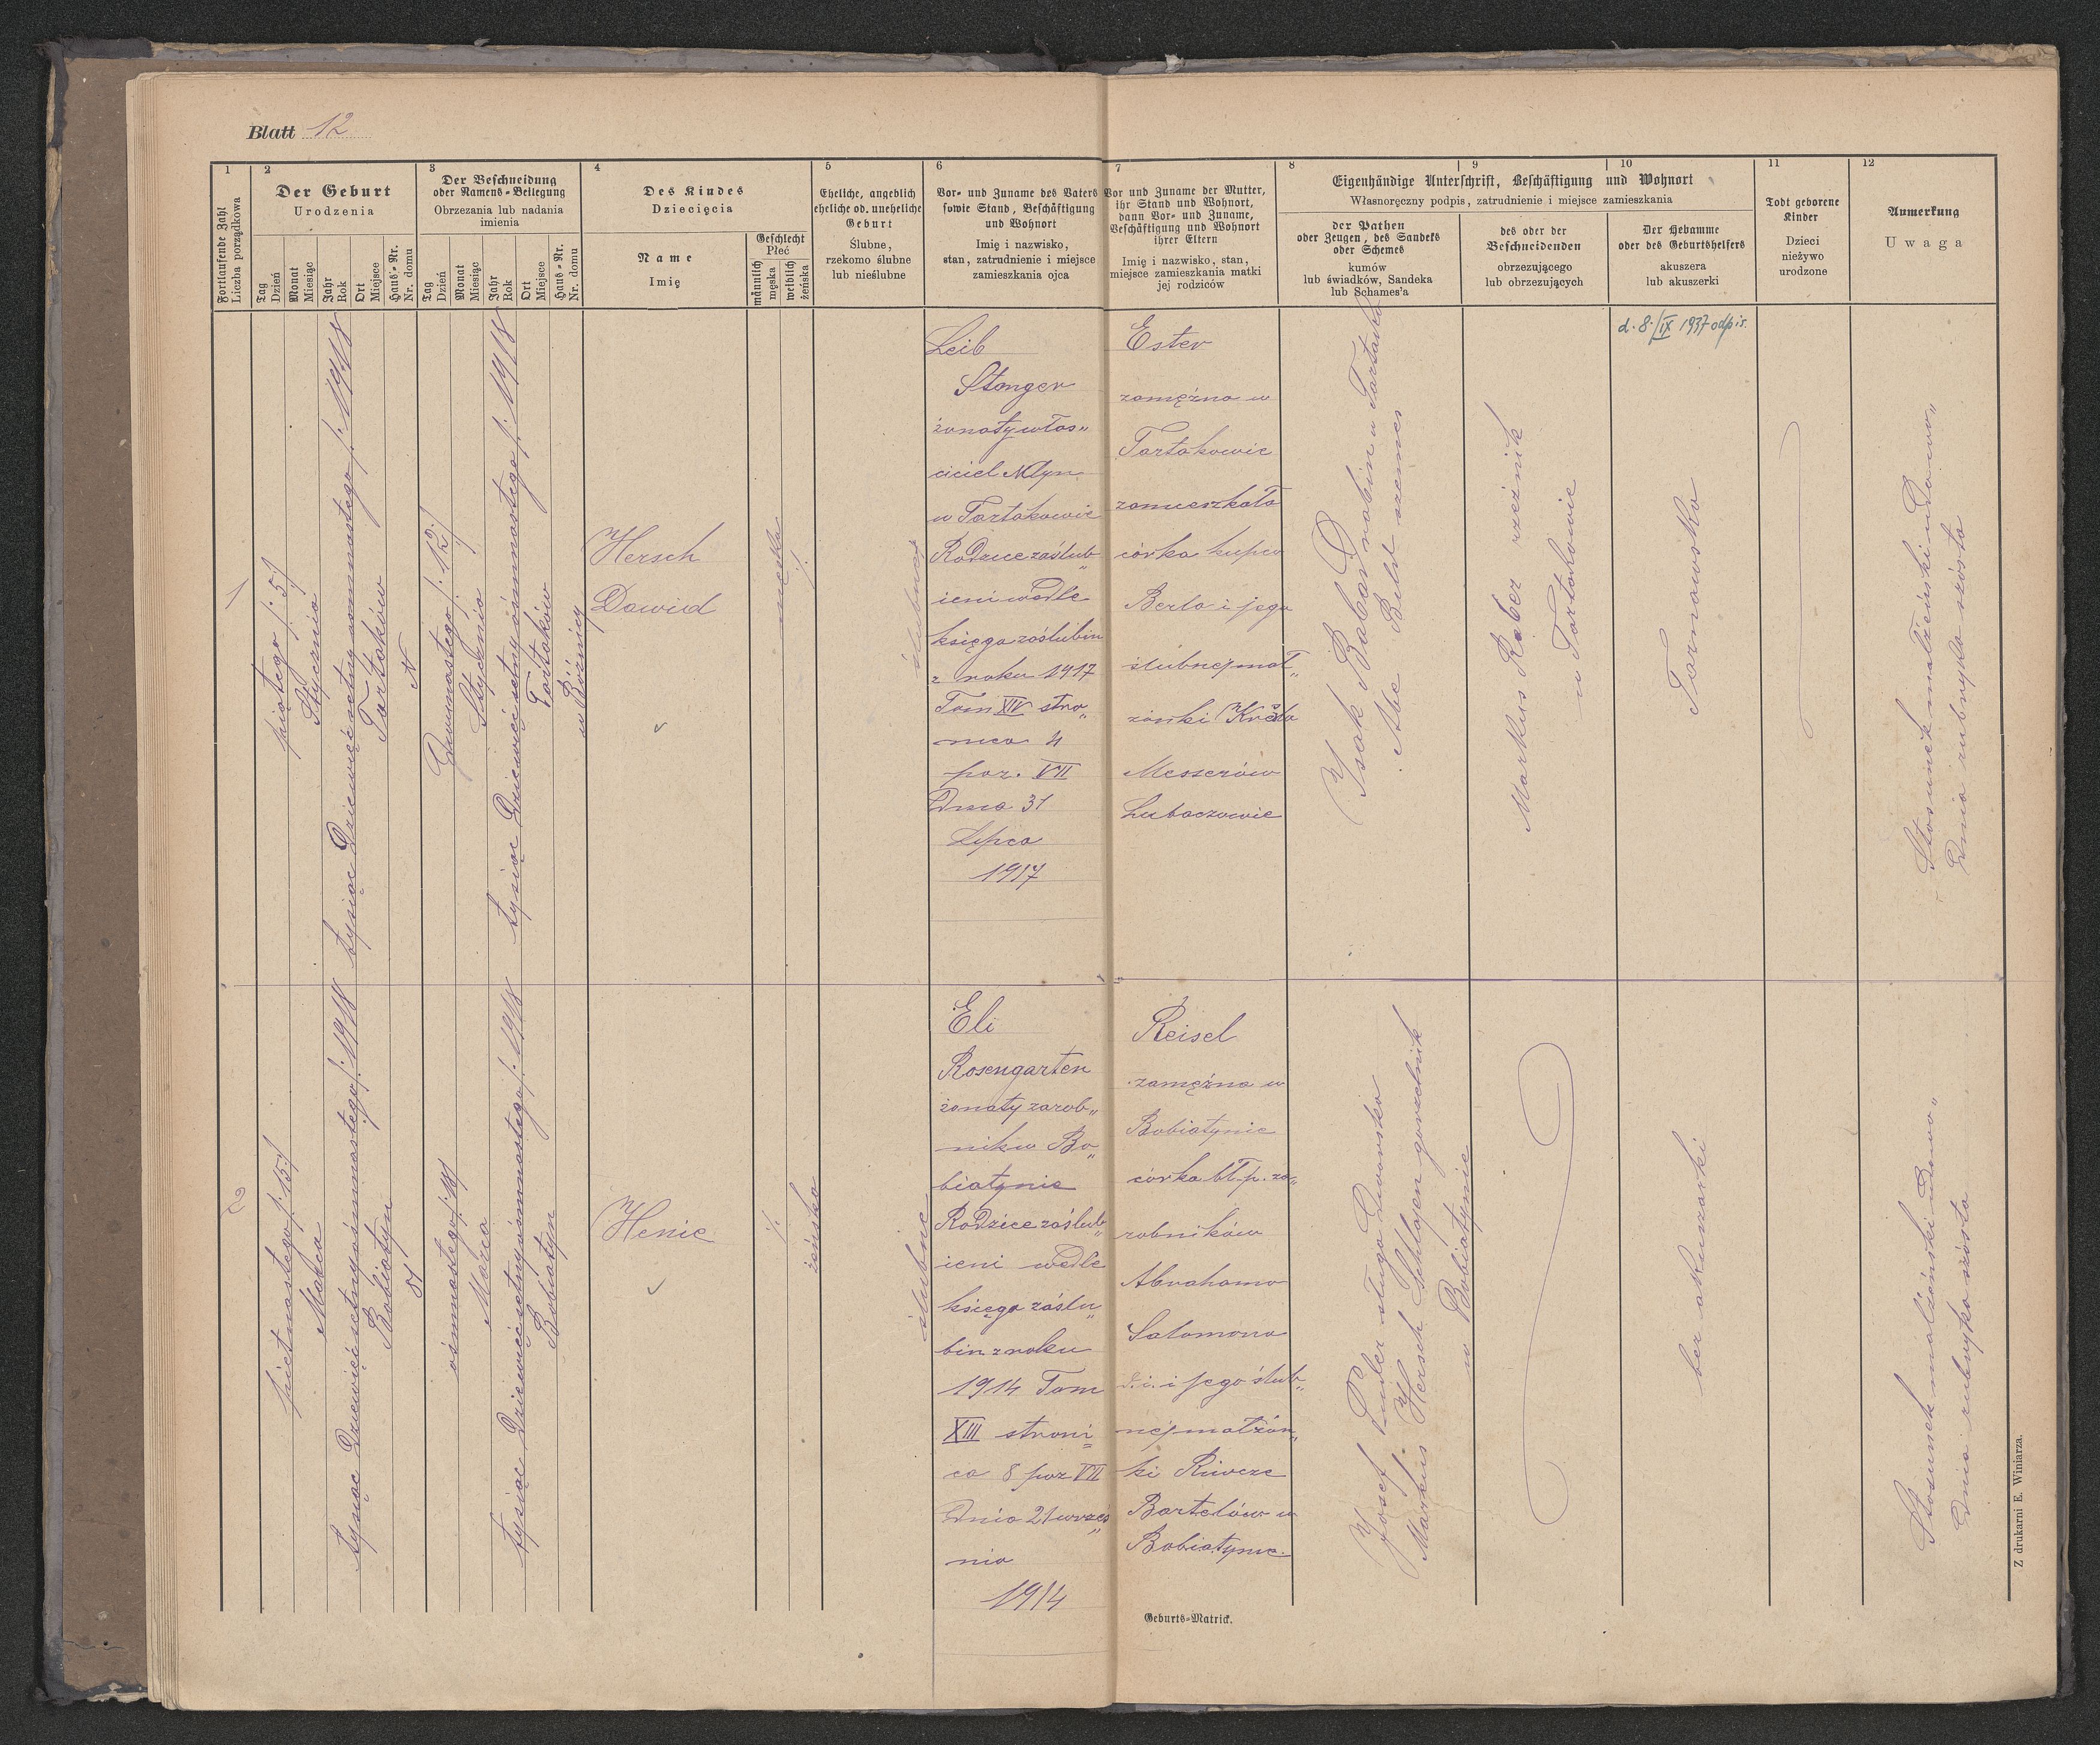 Blatt 12
1
Fortlaufende Zahl
Liczba porządkowa
2
Der Geburt
Urodzenia
Tag
Dzień
Monat
Miesiąc
Jahr
Rok
Ort
Miejsce
Haus-Nr.
Nr. domu
3
Der Beschneidung
oder Namens-Beilegung
Obrzezania lub nadania
imienia
Tag
Dzień
Monat
Miesiąc
Jahr
Rok
Ort
Miejsce
Haus-Nr.
Nr. domu
4
Des Kindes
Dziecięcia
Name
Imię
Geschlecht
Płeć
männlich
męska
weiblich
żeńska
5
Eheliche, angeblich
eheliche od. uneheliche
Geburt
Ślubne,
rzekomo ślubne
lub nieślubne
6
Vor- und Zuname des Vaters
sowie Stand, Beschäftigung
und Wohnort
Imię i nazwisko,
stan, zatrudnienie i miejsce
zamieszkania ojca
7
Vor und Zuname der Mutter,
ihr Stand und Wohnort,
dann Vor- und Zuname,
Beschäftigung und Wohnort
ihrer Eltern
Imię i nazwisko, stan,
miejsce zamieszkania matki
jej rodziców
8
9
10
Eigenhändige Unterschrift, Beschäftigung und Wohnort
Własnoręczny podpis, zatrudnienie i miejsce zamieszkania
der Pathen
oder Zeugen, des Sandeks
oder Schemes
kumów
lub świadków, Sandeka
lub Schames'a
des oder der
Beschneidenden
obrzezującego
lub obrzezujących
Der Hebamme
oder des Geburtshelfers
akuszera
lub akuszerki
11
Todt geborene
Kinder
Dzieci
nieżywo
urodzone
12
Anmerkung
Uwaga
1
piątego /: 5:/
Stycznia
tysiąc dziewięćsetny ośmnastego /: 1918
Tartaków
N
Dwunastego /: 12:/
Stycznia
tysiąc dziewięćsetny ośmnastego /: 1918
Tartaków
w Bóżnicy
Hersch
Dawid
męska
/.
ślubne
Leib
Stanger
żonaty włas„
ciciel Młyn
w Tartakowie
Rodzice zaślub„
ieni wedle
księga zaślubin
z roku 1917
Tom XIV stro„
nica 4
poz. VII
Dnia 31
Lipca
1917
Ester
zamężna w
Tartakowie
zamieszkała
córka kupca
Berla i jego
ślubnej mał„
żonki
Messerów
Lubaczowie
Isak Babad rabin w Tartaków
Abe Bilt szemes
Markus Raber rzeźnik
w Tartakowie
d. 8./IX 1937 odpis.
Tarnawska
Stosunek małżeński udowo„
dnia rubryka szósta
2
pietnastego /: 15:/
Marca
tysiąc dziewięćsetny ośmnastego /: 1918
Bobiatyn
81
ośmnastego /: 18
Marca
tysiąc dziewięćsetny ośmnastego /: 1918
Bobiatyn
Henie
/.
żeńska
ślubne
Eli
Rosengarten
żonaty zarob„
nik w Bo„
biatynie
Rodzice zaślub„
ieni wedle
księga zaślu„
bin z roku
1914 Tom
XIII stroni=
ca 8 poz VII
Dnia 21 wrześ„
nia
1914
Reisel
zamężna w
Bobiatynie
córka bł. p. za„
robników
Abrahama
Salamona
d. i. i jego ślub„
nej małżon„
ki
Bartelów w
Bobiatynie
Josef sługa Dworska
Markus Hersch gorzelnik
w Bobiatynie
bez akuszerki
Stosunek małżeński udowo„
dnia rubryka szósta
Geburts-Matrick.
Z drukarni E. Winiarza.